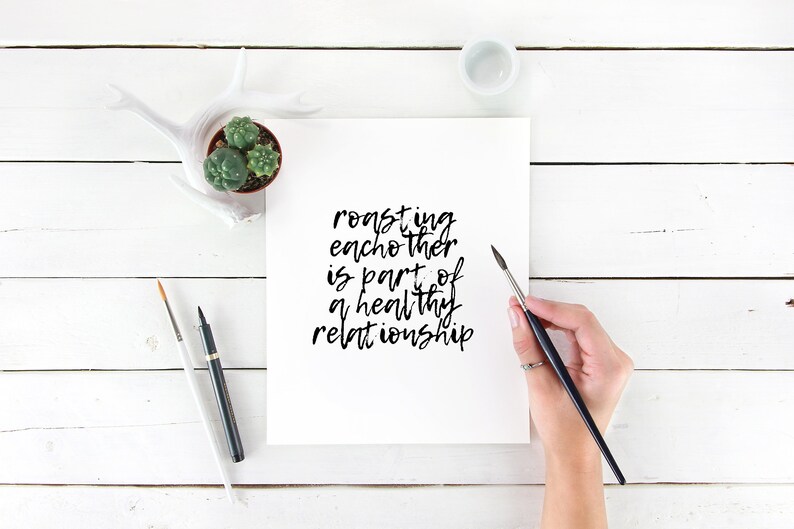 roasting
eachother
is part of
a healthy
relationship